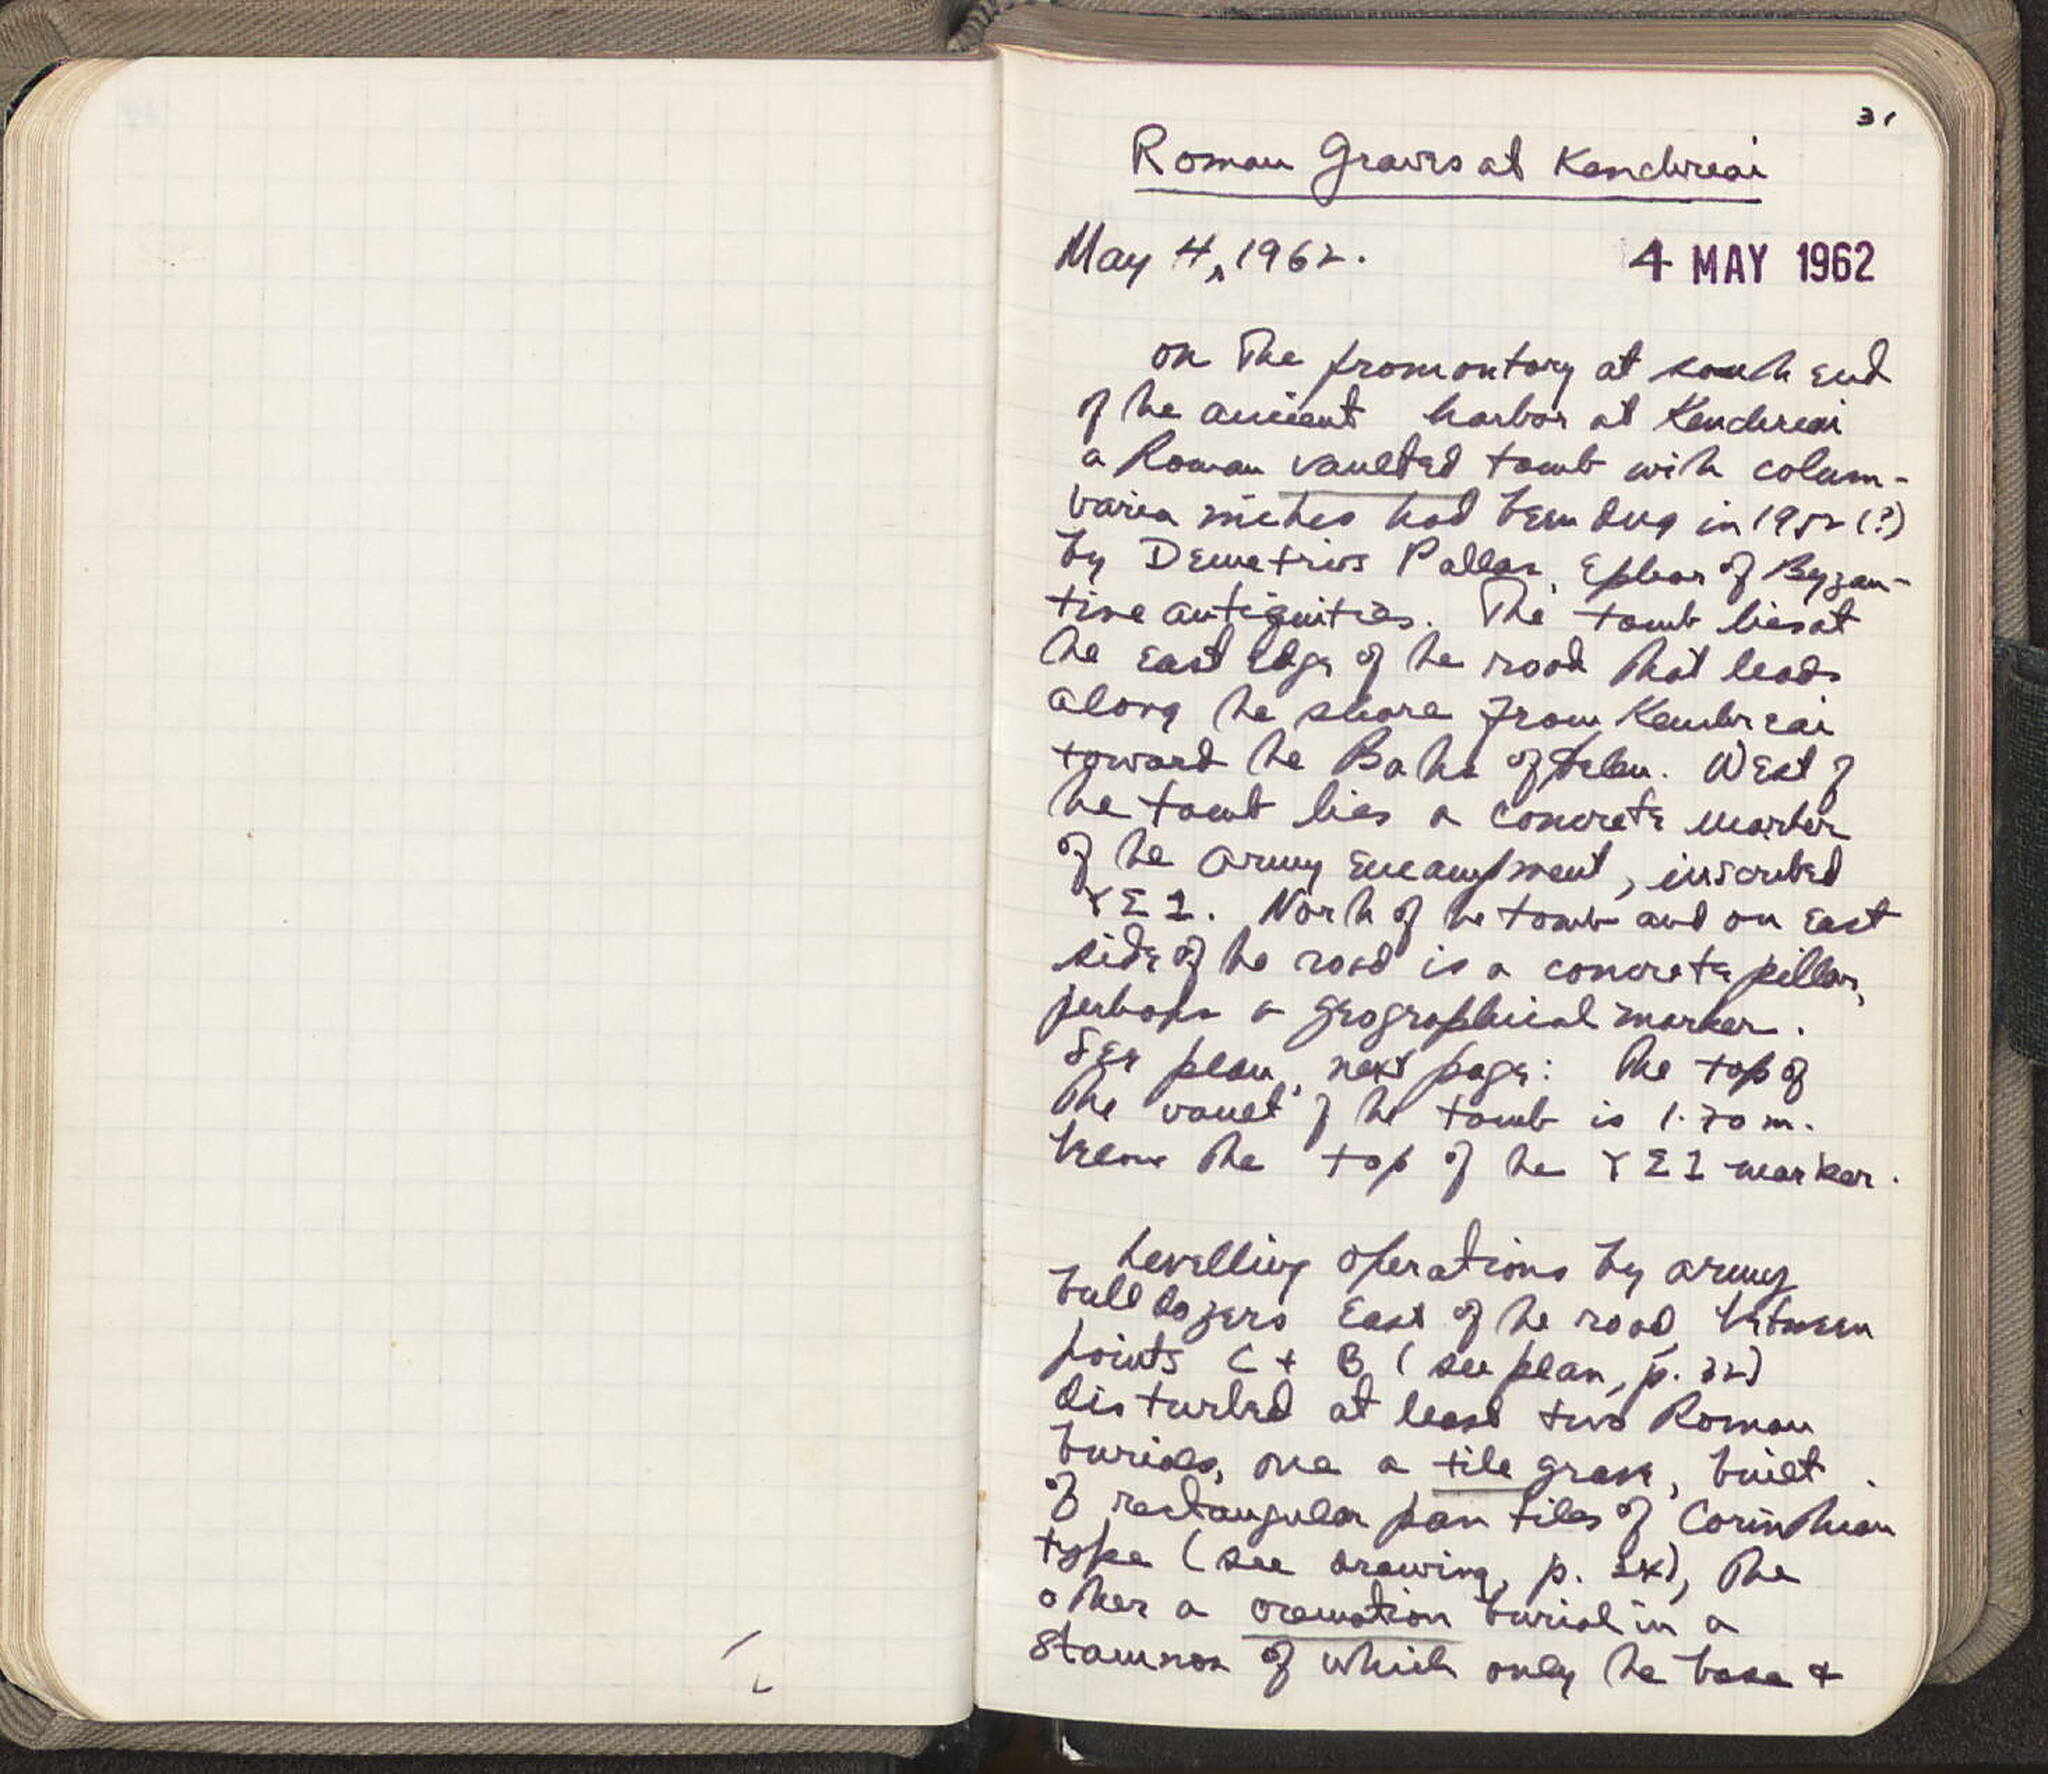 31
Roman Graves at Kenchreai
May 4, 1962.
4 MAY 1962
On the promontory at south end
of the ancient harbor at Kenchreai
a Roman vaulted tomb with colum-
baria niches had been dug in 1952 (?)
by Demetrios Pallas, Ephor of Byzan-
tine antiquities. The tomb lies at
the East edge of the road that leads
along the shore from Kenchreai
toward the Baths of Helen. West of
the tomb lies a concrete marker
of the army encampment, inscribed
ΥΣ1. North of the tomb and on East
side of the road is a concrete pillar,
perhaps a geographical marker.
See plan, next page: The top of
the vault of the tomb is 1.70 m.
below the top of the ΥΣ1 marker.
Levelling operations by army
bulldozers East of the road, between
points C + B (see plan, p. 32)
disturbed at least two Roman
burials, one a tile grave, built
of rectangular pan tiles of Corinthian
type (see drawing, p. 34), the
other a cremation burial in a
stamnos of which only the base +